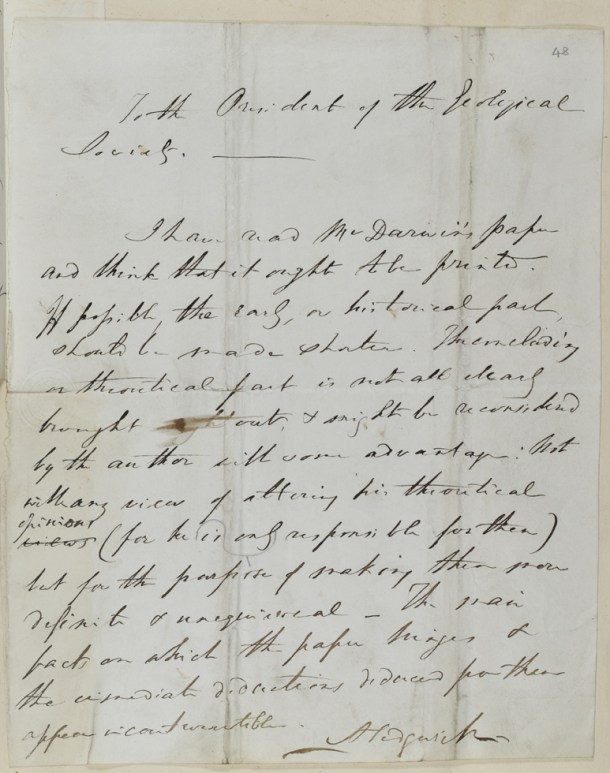 48
To the President of the Geological
Society. ———
I have read Mr Darwin's paper
and think that it ought to be printed.
If possible, the early, or historical part,
should be made shorter. The concluding
or theoretical part is not all clearly
brought out, & might be reconsidered
by the author with some advantage: Not
with any view of altering his theoretical
opinions
views (for he is only responsible for them)
but for the purpose of making them more
definite & unequivocal — The main
facts on which the paper hinges &
the immediate deductions deduced from them
appear incontrovertible.
A Sedgwick